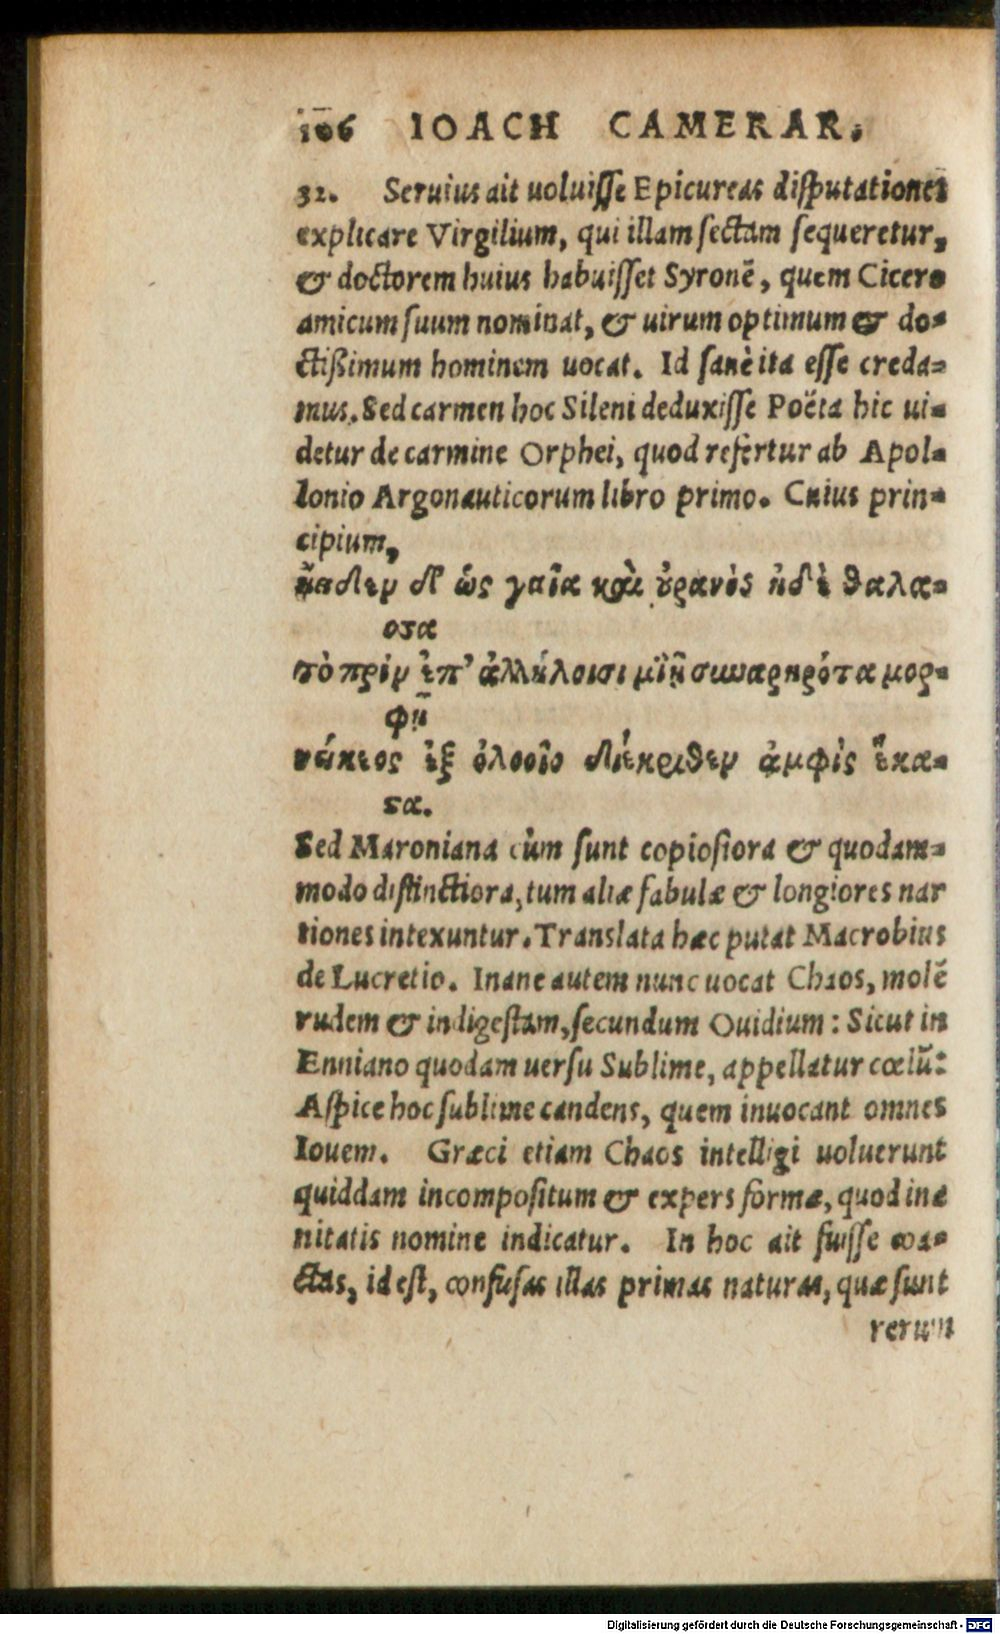 106 IOACH CAMERAR.
32. Seruius ait uoluisse Epicureas disputationes
explicare Virgilium, qui illam sectam sequeretur,
& doctorem huius habuisset Syronē, quem Cicero
amicum suum nominat, & uirum optimum & do-
ctißimum hominem uocat. Id sanè ita esse creda-
mus. Sed carmen hoc Sileni deduxisse Poëta hic ui-
detur de carmine Orphei, quod refertur ab Apol-
lonio Argonauticorum libro primo. Cuius prin-
cipium,
ἤειδεν δ' ὡς γαῖα καὶ ὀρανὸς ἠδὲ θαλα-
σσα
τὸ πρὶν ἐπ' ἀλλήλοισι μιῇ συναρηρότα μορ-
φῇ
νείκεος ἐξ ὀλοοῖο διέκριθεν ἀμφὶς ἕκα-
στα.
Sed Maroniana cùm sunt copiosiora & quodam-
modo distinctiora, tum aliæ fabulæ & longiores nar
tiones intexuntur. Translata hæc putat Macrobius
de Lucretio. Inane autem nunc uocat Chaos, molē
rudem & indigestam, secundum Ouidium: Sicut in
Enniano quodam uersu Sublime, appellatur cœlū:
Aspice hoc sublime candens, quem inuocant omnes
Iouem. Græci etiam Chaos intelligi uoluerunt
quiddam incompositum & expers formæ, quod ina
nitatis nomine indicatur. In hoc ait fuisse coa-
ctas, id est, confusas illas primas naturas, quæ sunt
rerum
Digitalisierung gefördert durch die Deutsche Forschungsgemeinschaft - DFG